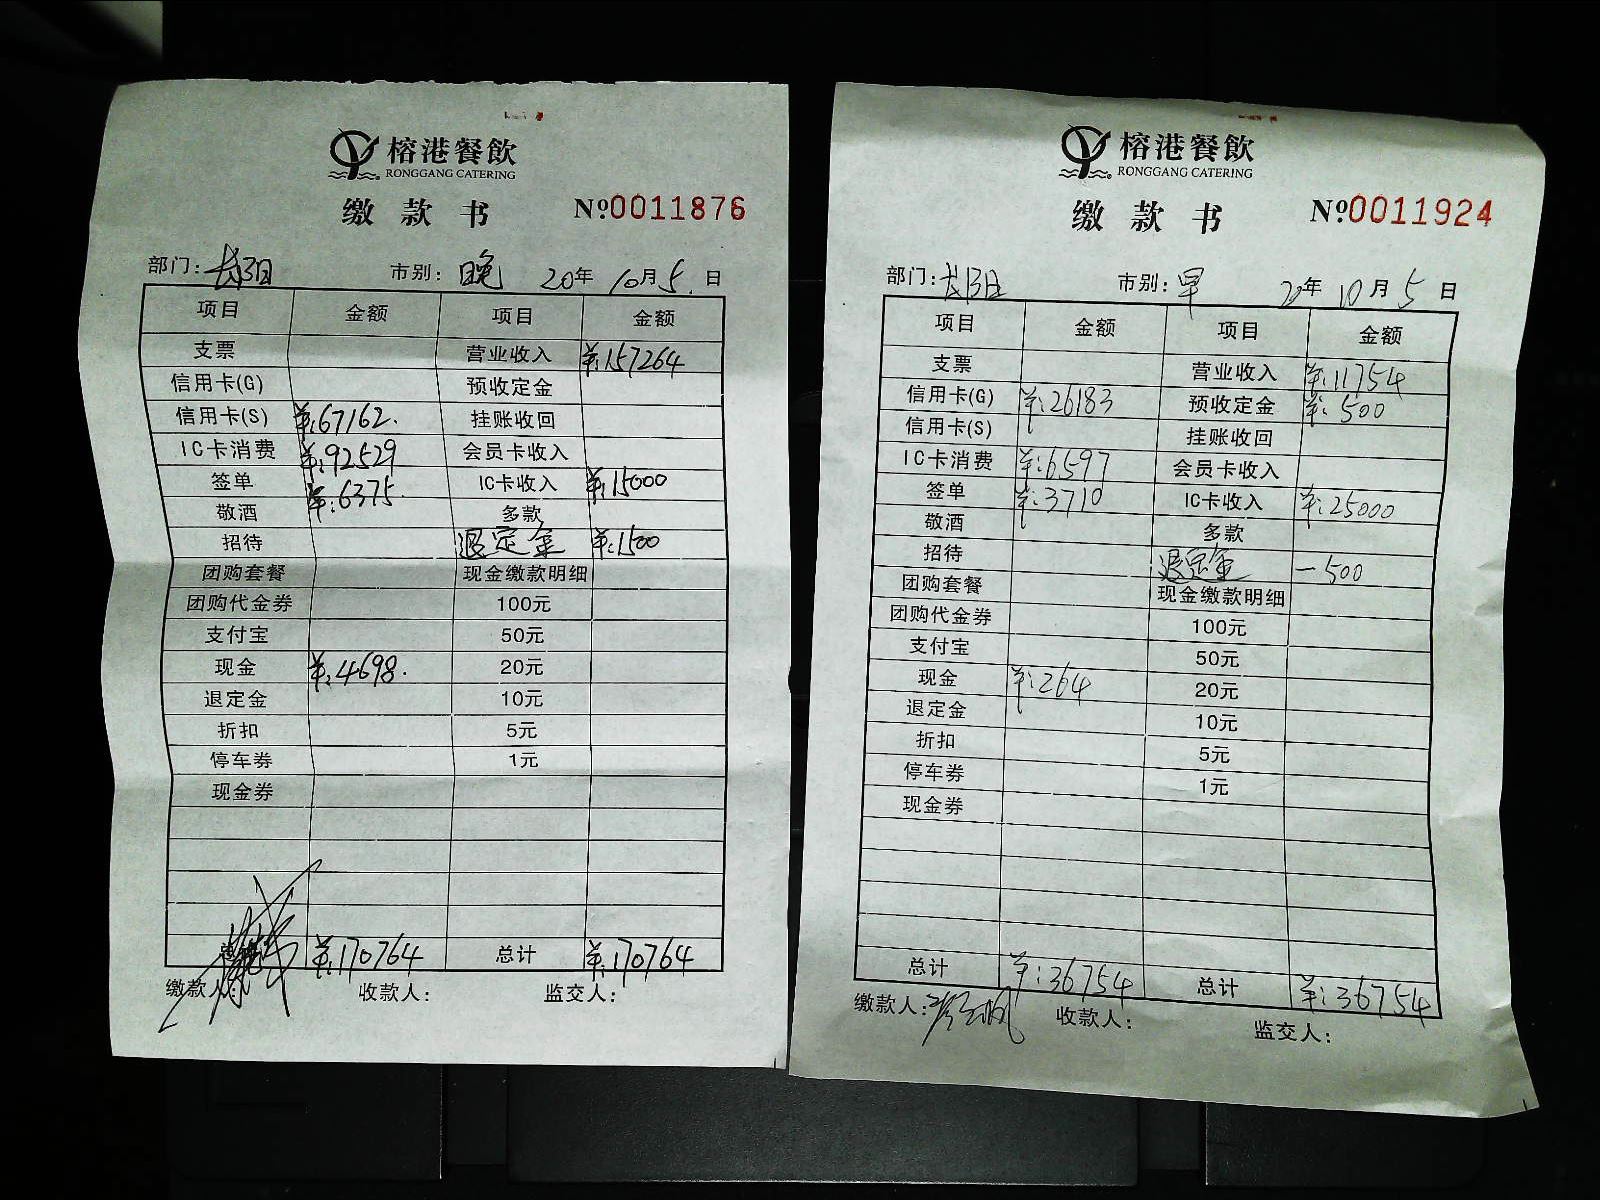 榕港餐飲
RONGGANG CATERING
缴款书 №0011876
部门: 长阳 市别: 晚 20年10月5日
项目 金额 项目 金额
支票 营业收入 ¥:157264
信用卡(G) 预收定金
信用卡(S) ¥:67162. 挂账收回
IC卡消费 ¥:92529 会员卡收入
签单 ¥:6375. IC卡收入 ¥:15000
敬酒 多款
招待 退定金 ¥:1500
团购套餐 现金缴款明细
团购代金券 100元
支付宝 50元
现金 ¥:4698. 20元
退定金 10元
折扣 5元
停车券 1元
现金券
¥:170764 总计 ¥:170764
缴款人: 收款人: 监交人:
榕港餐飲
RONGGANG CATERING
缴款书 №0011924
部门: 长阳 市别: 早 20年10月5日
项目 金额 项目 金额
支票 营业收入 ¥:11754
信用卡(G) ¥:26183 预收定金 ¥:500
信用卡(S) 挂账收回
IC卡消费 ¥:6597 会员卡收入
签单 ¥:3710 IC卡收入 ¥:25000
敬酒 多款
招待 退定金 -500
团购套餐 现金缴款明细
团购代金券 100元
支付宝 50元
现金 ¥:264 20元
退定金 10元
折扣 5元
停车券 1元
现金券
总计 ¥:36754 总计 ¥:36754
缴款人: 收款人: 监交人: